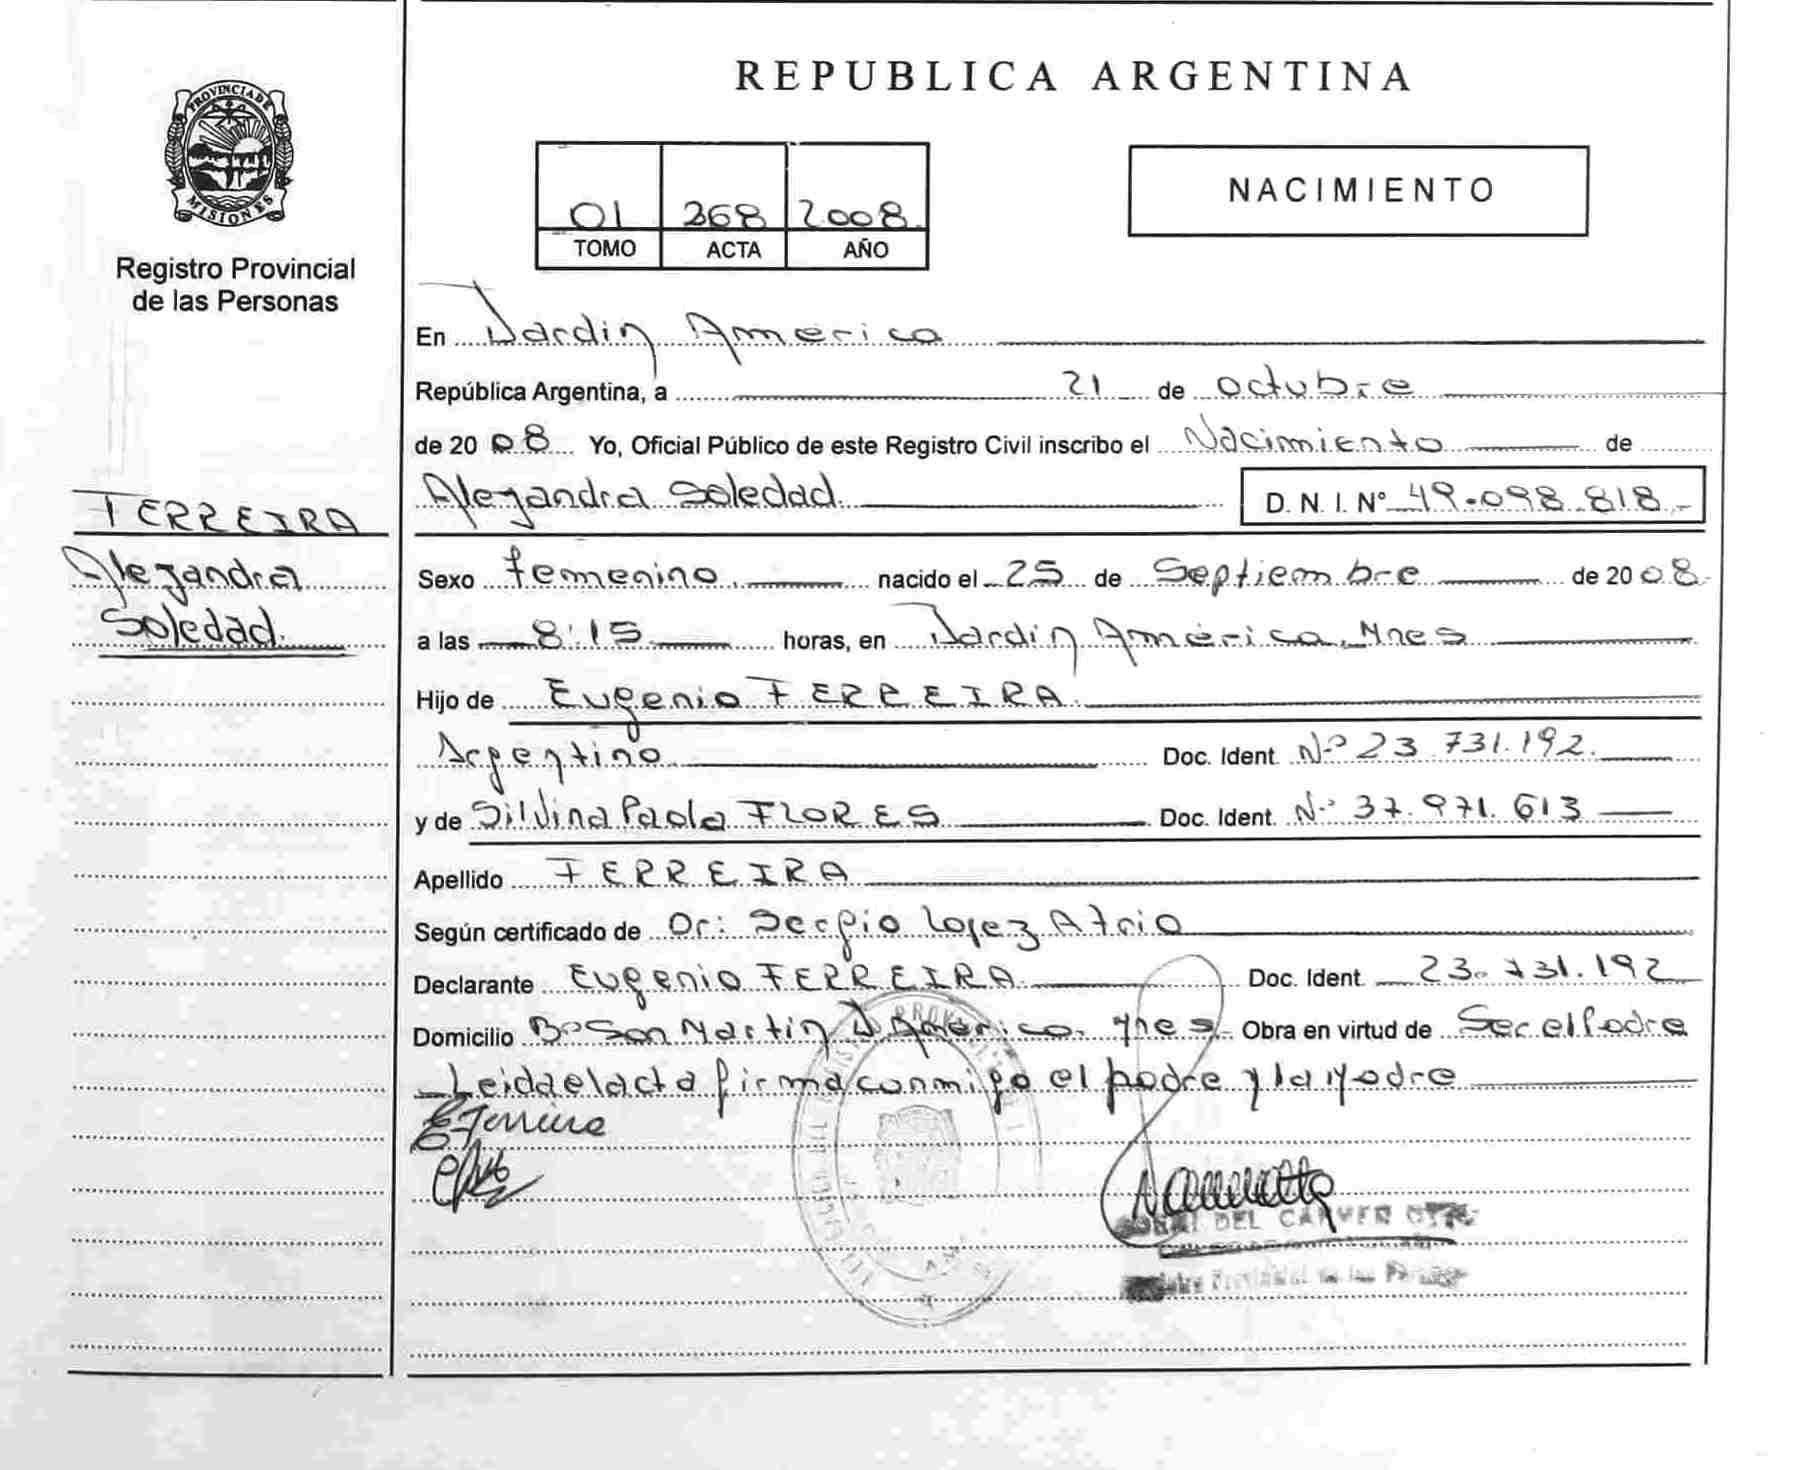 REPUBLICA ARGENTINA
PROVINCIA DE
MISIONES
Registro Provincial
de las Personas
NACIMIENTO
01 268 2008
TOMO ACTA AÑO
En Jardin America
República Argentina, a 21 de octubre
de 2008 Yo, Oficial Público de este Registro Civil inscribo el Nacimiento de
Alejandra Soledad. D. N. I. Nº 49.098.818.-
FERREIRA
Alejandra
Soledad.
Sexo femenino. nacido el 25 de Septiembre de 2008.
a las 8:15 horas, en Jardin América. Mnes
Hijo de Eugenio FERREIRA.
Argentino. Doc. Ident. Nº 23.731.192.
y de Silvina Paola FLORES Doc. Ident. Nº 37.971.613
Apellido FERREIRA
Según certificado de Dr: Sergio Lopez Atrio
Declarante Eugenio FERREIRA. Doc. Ident. 23.731.192
Domicilio Bº San Martin J America. Mnes. Obra en virtud de Ser el Padre
Leida el acta firma conmigo el padre y la Madre
E Ferreira
DEL CARMEN
Provincial de las